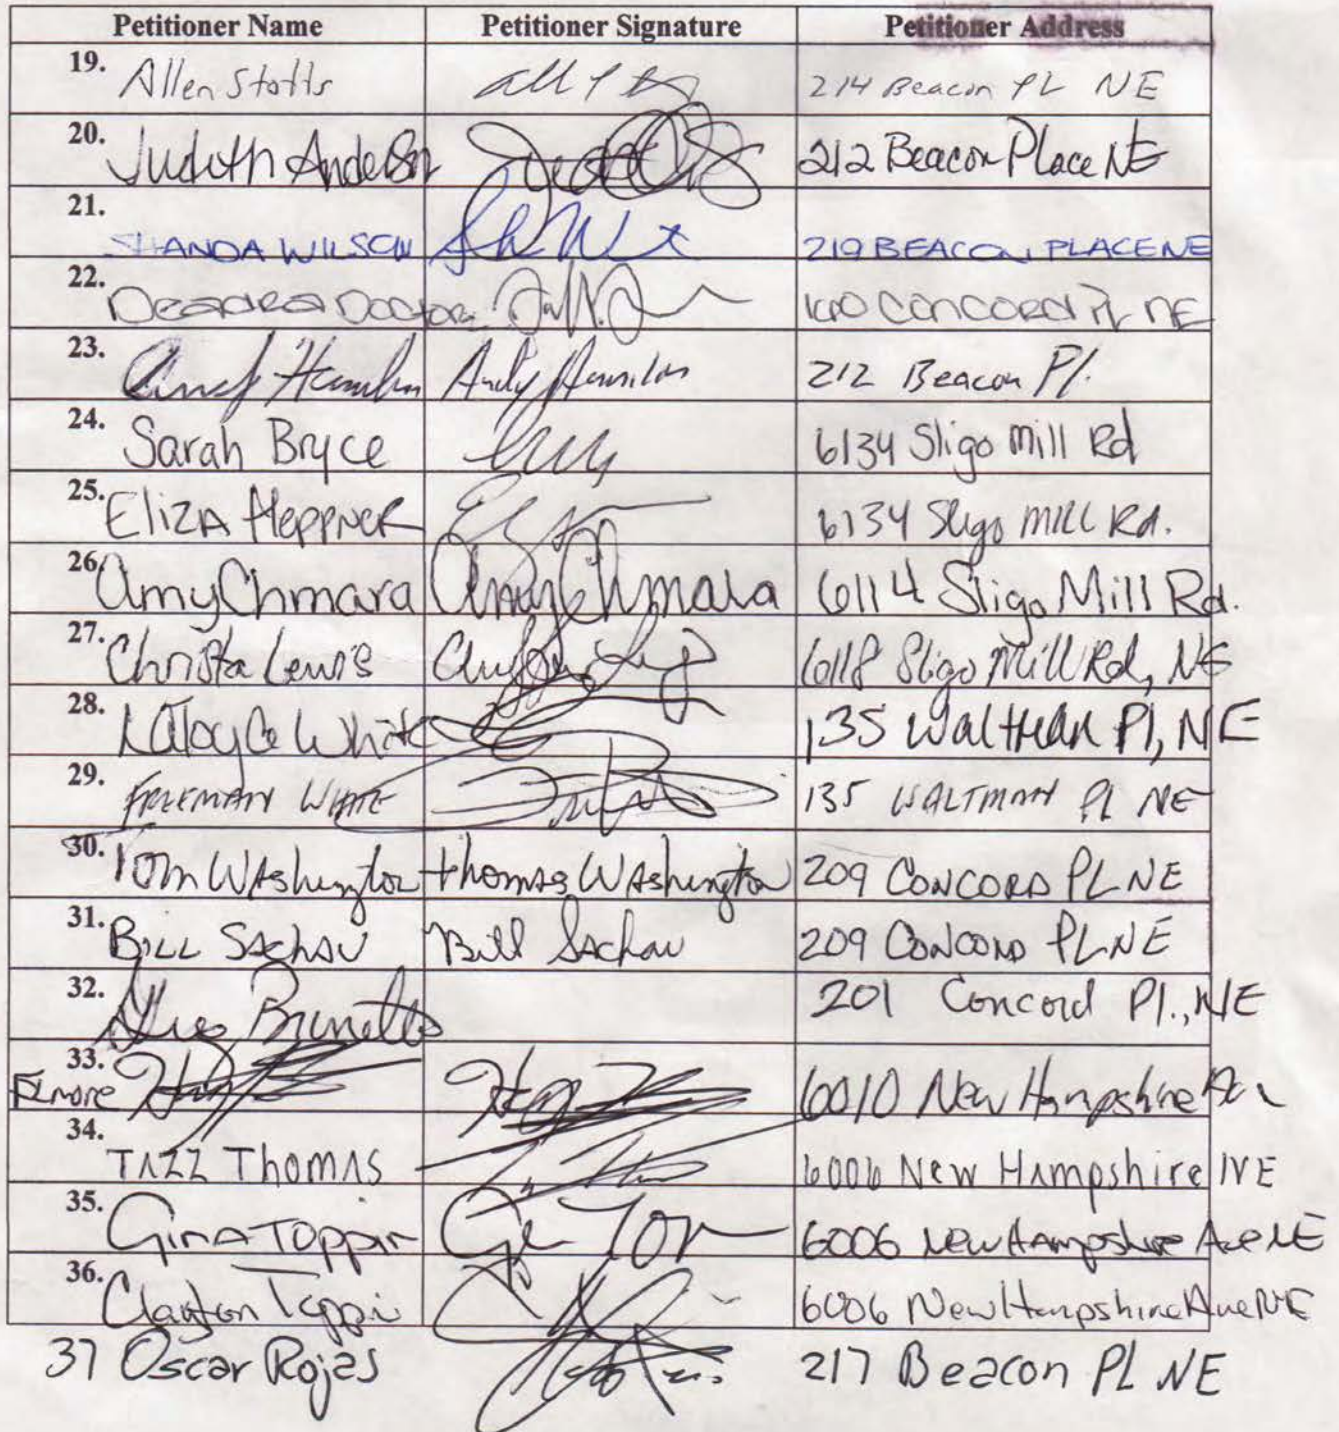 Petitioner Name Petitioner Signature Petitioner Address
19. Allen Stotts 214 Beacon PL NE
20. Judith Anderson 212 Beacon Place NE
21. SHANDA WILSON 219 BEACON PLACE NE
22. Deadra Doctor CONCORD PL NE
23. Andy Hamilton 212 Beacon Pl.
24. Sarah Bryce 6134 Sligo Mill Rd
25. Eliza Heppner 6134 Sligo Mill Rd.
26. Amy Chmara Amy Chmara 6114 Sligo Mill Rd.
27. Christa Lewis 6118 Sligo Mill Rd, NE
28. LaToya White 135 Pl, NE
29. FREEMAN WHITE 135 WALTMAN Pl NE
30. Tom Washington Thomas Washington 209 CONCORD PL NE
31. Bill Sachau Bill Sachau 209 CONCORD PL NE
32. Brunetto 201 Concord Pl., NE
33. Elmore 6010 New Hampshire Ave
34. TAZZ Thomas 6006 New Hampshire NE
35. Gina Toppin 6006 New Hampshire Ave NE
36. Clayton Toppin 6006 New Hampshire Ave NE
37 Oscar Rojas 217 Beacon PL NE